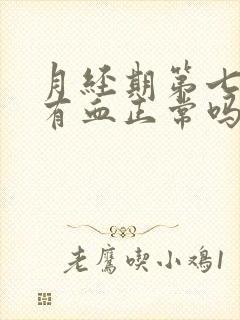 月经期第七
有血正常吗
老鹰喫小鸡1